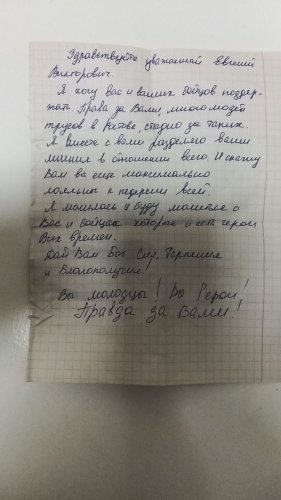 Здравствуйте уважаемый Евгений
Викторович.
Я хочу вас и ваших бойцов поддер-
жать. Правда за Вами, много людей
трусов в Ростове, стадно за таких.
Я Вместе с вами разделяю ваши
мнения в отношении всего. И скажу
Вам вы еще максимально
лояльны к всей
Я молилась и буду молиться о
Вас и бойцах которые и есть герои
Всех времен.
Дай Вам Бог Сил, Терпения
и Благополучия!
Вы молодцы! Вы Герои!
Правда за Вами!